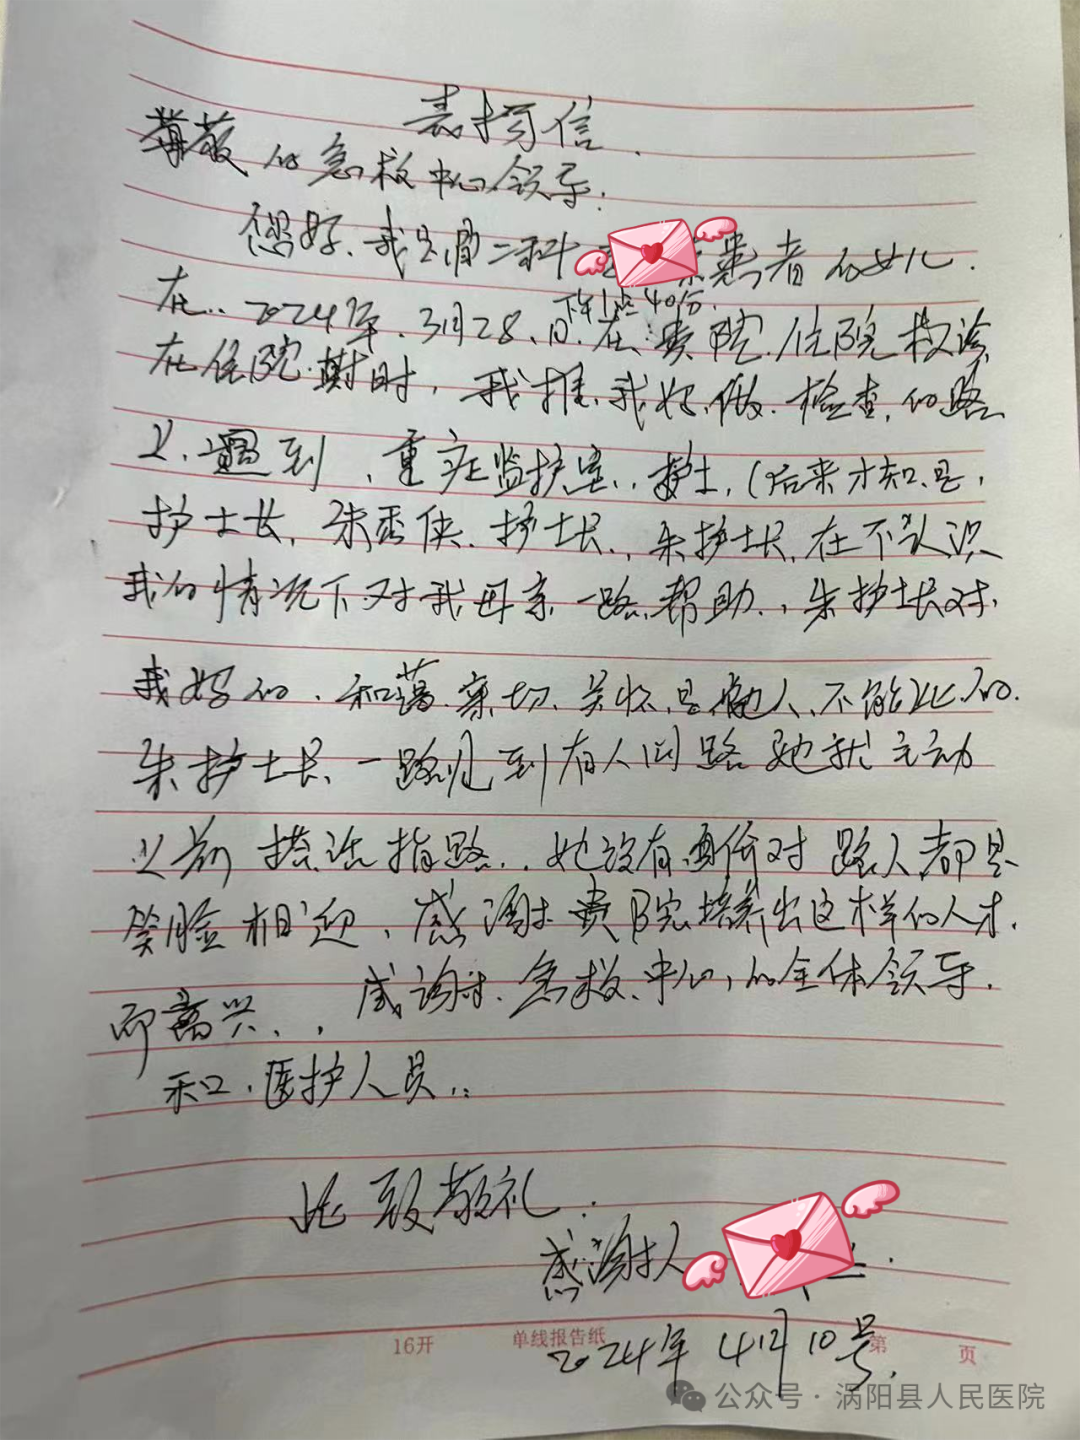 表扬信.
尊敬的急救中心领导:
您好、我是骨二科 床患者的女儿.
下午1点40分.
在..2024年.3月28.日.在:贵院.住院救诊
在住院.期时,我推.我妈.做.检查.的路
上.遇到、重症监护室..护士,(后来才知.是,
护士长,朱秀侠.护士长.,朱护士长.在不认识
我的情况下对我母亲一路.帮助.,朱护士长对,
我妈的、和蔼.亲切.关怀.是他人、不能比.的.
朱护士长、一路见到有人问路她就主动
上前搭话指路..她没有画价对路人都是
笑脸相迎、感谢贵院培养出这样的人才.
而高兴、,感谢.急救.中心,的全体领导.
和、医护人员..
此致敬礼.
感谢人
2024年4月10号.
16开 单线报告纸 第 页
公众号·涡阳县人民医院